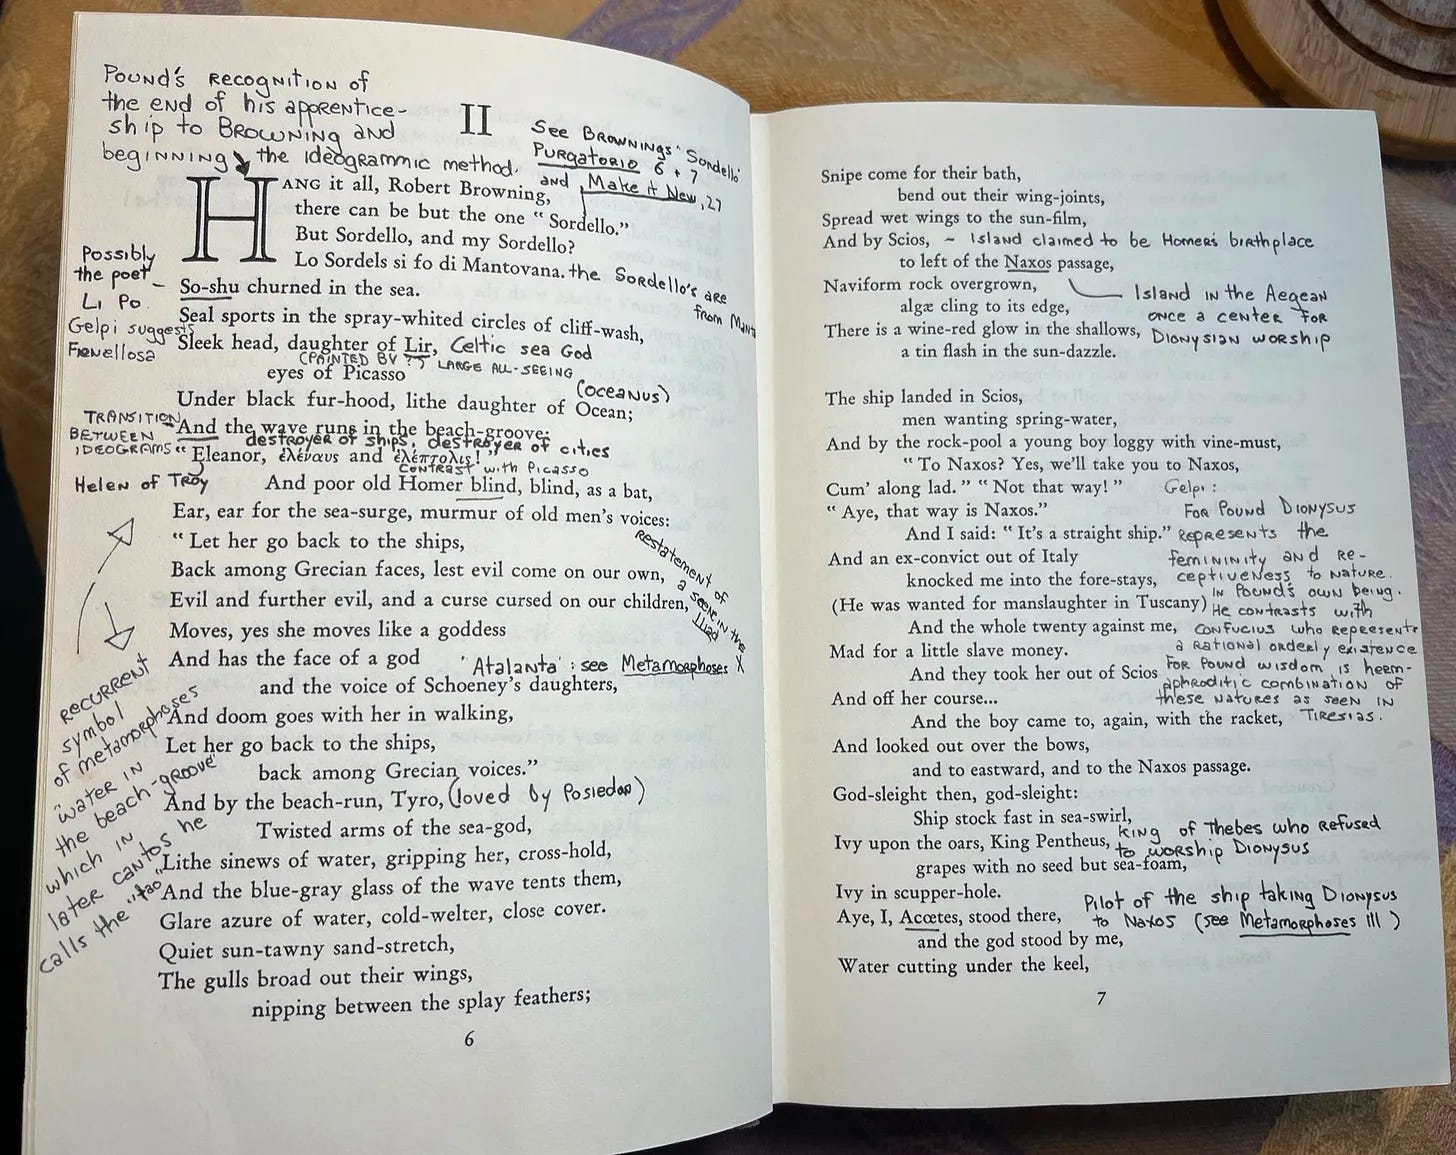 Pound's recognition of
the end of his apprentice-
ship to Browning and
beginning the ideogrammic method.
II
See Brownings' Sordello
Purgatorio 6 + 7
and Make it New, 27
HANG it all, Robert Browning,
there can be but the one "Sordello."
But Sordello, and my Sordello?
Lo Sordels si fo di Mantovana. the Sordello's are
from Mant
Possibly
the poet –
Li Po.
So-shu churned in the sea.
Gelpi suggests
Fienellosa
Seal sports in the spray-whited circles of cliff-wash,
Sleek head, daughter of Lir, Celtic sea God
(painted by ??) large all-seeing
eyes of Picasso
(Oceanus)
Under black fur-hood, lithe daughter of Ocean;
Transition
between
ideograms
And the wave runs in the beach-groove:
destroyer of ships, destroyer of cities
"Eleanor, ἑλέναυς and ἑλέπτολις!"
contrast with Picasso
Helen of Troy
And poor old Homer blind, blind, as a bat,
Ear, ear for the sea-surge, murmur of old men's voices:
"Let her go back to the ships,
Back among Grecian faces, lest evil come on our own,
Evil and further evil, and a curse cursed on our children,
Restatement of
a scene in the
Iliad
Moves, yes she moves like a goddess
And has the face of a god
'Atalanta': see Metamorphoses X
and the voice of Schoeney's daughters,
And doom goes with her in walking,
Let her go back to the ships,
back among Grecian voices."
And by the beach-run, Tyro, (loved by Posiedon)
Twisted arms of the sea-god,
Lithe sinews of water, gripping her, cross-hold,
And the blue-gray glass of the wave tents them,
Glare azure of water, cold-welter, close cover.
Quiet sun-tawny sand-stretch,
The gulls broad out their wings,
nipping between the splay feathers;
recurrent
symbol
of metamorphoses
"water in
the beach-groove"
which in
later cantos he
calls the "tao"
6
Snipe come for their bath,
bend out their wing-joints,
Spread wet wings to the sun-film,
And by Scios, – Island claimed to be Homer's birthplace
to left of the Naxos passage,
Naviform rock overgrown,
algæ cling to its edge,
Island in the Aegean
once a center for
Dionysian worship
There is a wine-red glow in the shallows,
a tin flash in the sun-dazzle.
The ship landed in Scios,
men wanting spring-water,
And by the rock-pool a young boy loggy with vine-must,
"To Naxos? Yes, we'll take you to Naxos,
Cum' along lad." "Not that way!"
"Aye, that way is Naxos."
And I said: "It's a straight ship."
And an ex-convict out of Italy
knocked me into the fore-stays,
(He was wanted for manslaughter in Tuscany)
And the whole twenty against me,
Mad for a little slave money.
And they took her out of Scios
And off her course...
And the boy came to, again, with the racket,
Gelpi:
For Pound Dionysus
represents the
femininity and re-
ceptiveness to nature
in Pound's own being.
He contrasts with
Confucius who represents
a rational orderly existence
For Pound wisdom is herm-
aphroditic combination of
these natures as seen in
Tiresias.
And looked out over the bows,
and to eastward, and to the Naxos passage.
God-sleight then, god-sleight:
Ship stock fast in sea-swirl,
Ivy upon the oars, King Pentheus,
king of Thebes who refused
to worship Dionysus
grapes with no seed but sea-foam,
Ivy in scupper-hole.
Aye, I, Acœtes, stood there,
Pilot of the ship taking Dionysus
to Naxos (see Metamorphoses III)
and the god stood by me,
Water cutting under the keel,
7